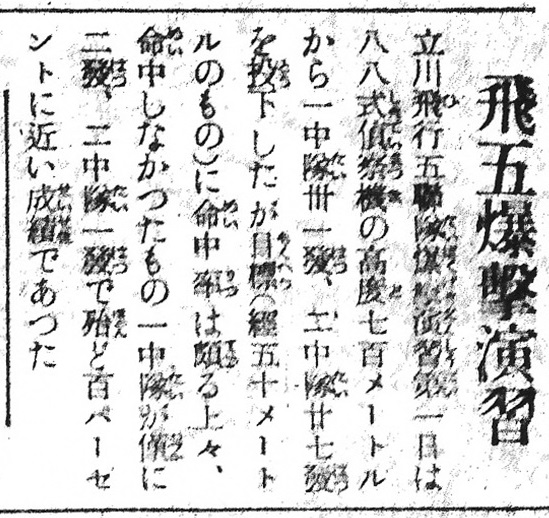 飛五爆擊演習
立川飛行五聯隊爆擊演習第一日は
八八式偵察機の高度七百メートル
から一中隊卅一發、二中隊廿七發
を投下したが目標(經五十メート
ルのもの)に命中率は頗る上々、
命中しなかつたもの一中隊が僅に
二發、二中隊一發で殆ど百パーセ
ントに近い成績であつた